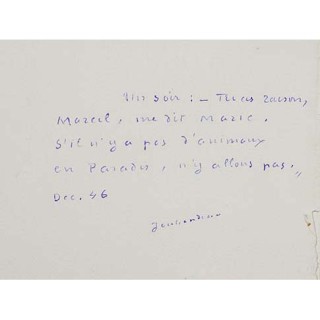 Un soir : – Tu as raison,
Marcel, me dit Marie.
S'il n'y a pas d'animaux
en Paradis, n'y allons pas. „
Dec. 46
Jouhandeau